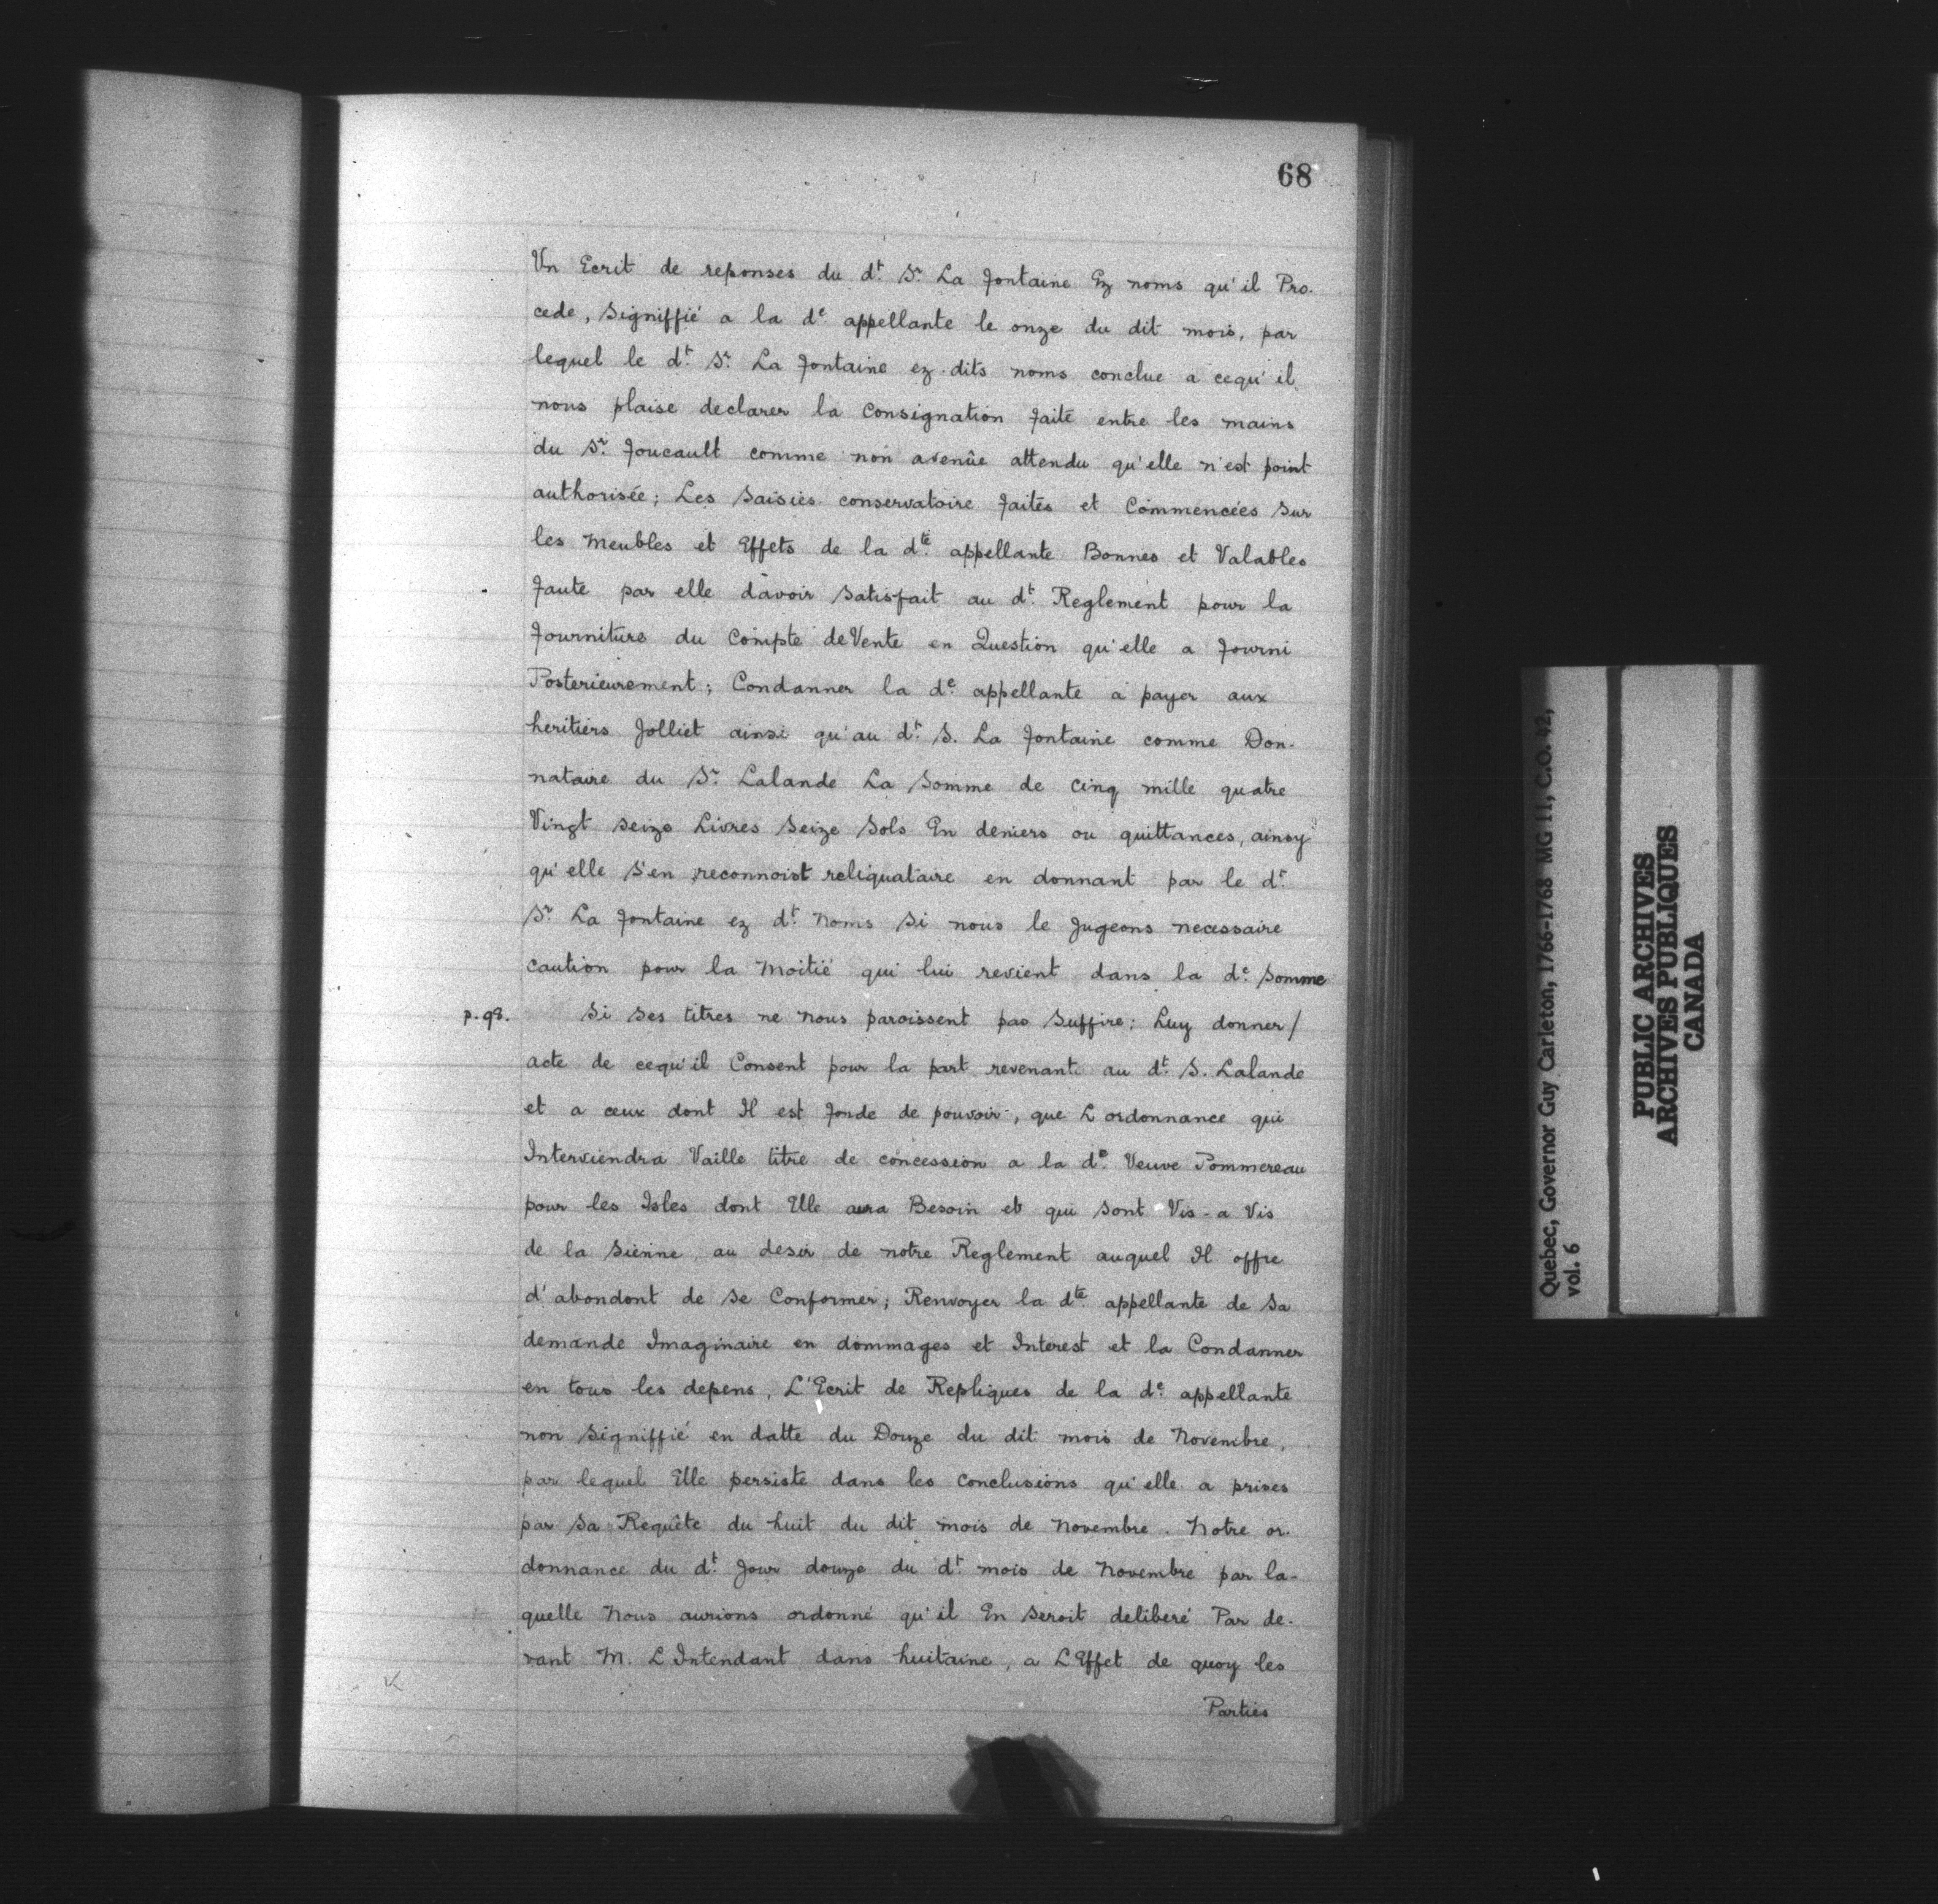 68
Vn Ecrit de reponses du dt. Sr. La fontaine Ez noms qu'il Pro-
cede, Signiffié a la de appellante le onze du dit mois, par
lequel le dt. Sr. La fontaine ez dits noms conclue a cequ'il
nous plaise declarer la Consignation faite entre les mains
du Sr. foucault comme non avenûe attendu qu'elle n'est point
authorisée; Les Saisies conservatoire faites et Commencées Sur
les Meubles et Effets de la dte. appellante Bonnes et Valables
faute par elle d'avoir Satisfait au dt. Reglement pour la
fourniture du Compte deVente en Question qu'elle a fourni
Posterieurement; Condanner la de. appellante a payer aux
heritiers Jolliet ainsi qu'au dt. S. La fontaine comme Don-
nataire du Sr. Lalande La Somme de Cinq mille quatre
Vingt Seize Livres Seize Sols En deniers ou quittances, ainsy
qu'elle S'en reconnoist reliquataire en donnant par le dt.
Sr. La fontaine ez dt. Noms Si nous le Jugeons necessaire
caution pour la Moitié qui lui revient dans la de. Somme
p. 98. Si Ses titres ne Nous paroissent pas Suffire; Luy donner/
acte de cequ'il Consent pour la part revenant au dt. S. Lalande
et a ceux dont Il est fonde de pouvoir, que L ordonnance qui
Interviendra Vaille titre de concession a la de. Veuve Pommereau
pour les Isles dont Elle aura Besoin et qui Sont Vis-a Vis
de la Sienne au desir de notre Reglement auquel Il offre
d'abondont de Se Conformer; Renvoyer la dte. appellante de Sa
demande Imaginaire en dommages et Interest et la Condanner
en tous les depens, L'Ecrit de Repliques de la de. appellante
non Signiffié en datte du Douze du dit mois de Novembre,
par lequel Elle persiste dans les Conclusions qu'elle a prises
par Sa Requête du huit du dit mois de Novembre. Notre or-
donnance du dt. Jour douze du dt. mois de Novembre par la-
quelle Nous aurions ordonné qu'il En Seroit deliberé Par de-
vant M. L Intendant dans huitaine, a L'Effet de quoy les
Parties
Quebec, Governor Guy Carleton, 1766-1768 MG 11, C.O. 42,
vol. 6
PUBLIC ARCHIVES
ARCHIVES PUBLIQUES
CANADA